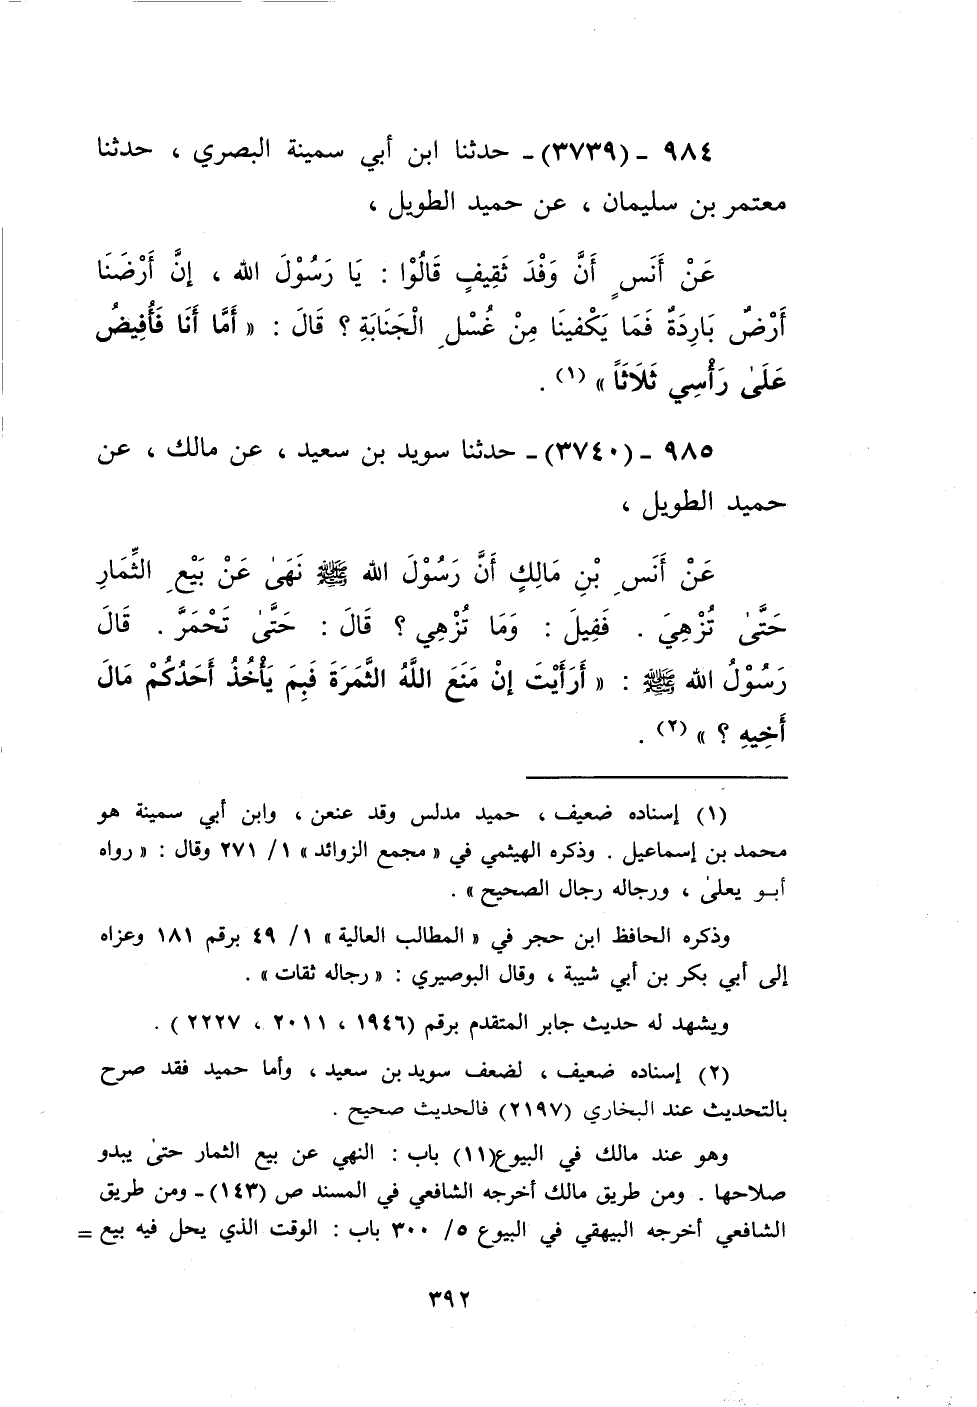 ٩٨٤ ـ (٣٧٣٩) ـ حدثنا ابن أبي سمينة البصري ، حدثنا
معتمر بن سليمان ، عن حميد الطويل ،
عَنْ أَنَسٍ أَنَّ وَفْدَ ثَقِيفٍ قَالُوْا : يَا رَسُوْلَ الله ، إِنَّ أَرْضَنَا
أَرْضٌ بَارِدَةٌ فَمَا يَكْفينَا مِنْ غُسْلِ الْجَنَابَةِ ؟ قَالَ : « أَمَّا أَنَا فَأُفِيضُ
عَلَىٰ رَأْسِي ثَلَاثَاً » (١) .
٩٨٥ ـ (٣٧٤٠) ـ حدثنا سويد بن سعيد ، عن مالك ، عن
حميد الطويل ،
عَنْ أَنَسِ بْنِ مَالِكٍ أَنَّ رَسُوْلَ الله ﷺ نَهَىٰ عَنْ بَيْعِ الثِّمَارِ
حَتَّىٰ تُزْهِيَ . فَقِيلَ : وَمَا تُزْهِي ؟ قَالَ : حَتَّىٰ تَحْمَرَّ . قَالَ
رَسُوْلُ الله ﷺ : « أَرَأَيْتَ إِنْ مَنَعَ اللَّهُ الثَّمَرَةَ فَبِمَ يَأْخُذُ أَحَدُكُمْ مَالَ
أَخِيهِ ؟ » (٢) .
(١) إسناده ضعيف ، حميد مدلس وقد عنعن ، وابن أبي سمينة هو
محمد بن إسماعيل . وذكره الهيثمي في « مجمع الزوائد » ١/ ٢٧١ وقال : « رواه
أبو يعلىٰ ، ورجاله رجال الصحيح » .
وذكره الحافظ ابن حجر في « المطالب العالية » ١/ ٤٩ برقم ١٨١ وعزاه
إلى أبي بكر بن أبي شيبة ، وقال البوصيري : « رجاله ثقات » .
ويشهد له حديث جابر المتقدم برقم (١٩٤٦ ، ٢٠١١ ، ٢٢٢٧ ) .
(٢) إسناده ضعيف ، لضعف سويد بن سعيد ، وأما حميد فقد صرح
بالتحديث عند البخاري (٢١٩٧) فالحديث صحيح .
وهو عند مالك في البيوع(١١) باب : النهي عن بيع الثمار حتىٰ يبدو
صلاحها . ومن طريق مالك أخرجه الشافعي في المسند ص (١٤٣) ـ ومن طريق
الشافعي أخرجه البيهقي في البيوع ٥/ ٣٠٠ باب : الوقت الذي يحل فيه بيع =
٣٩٢